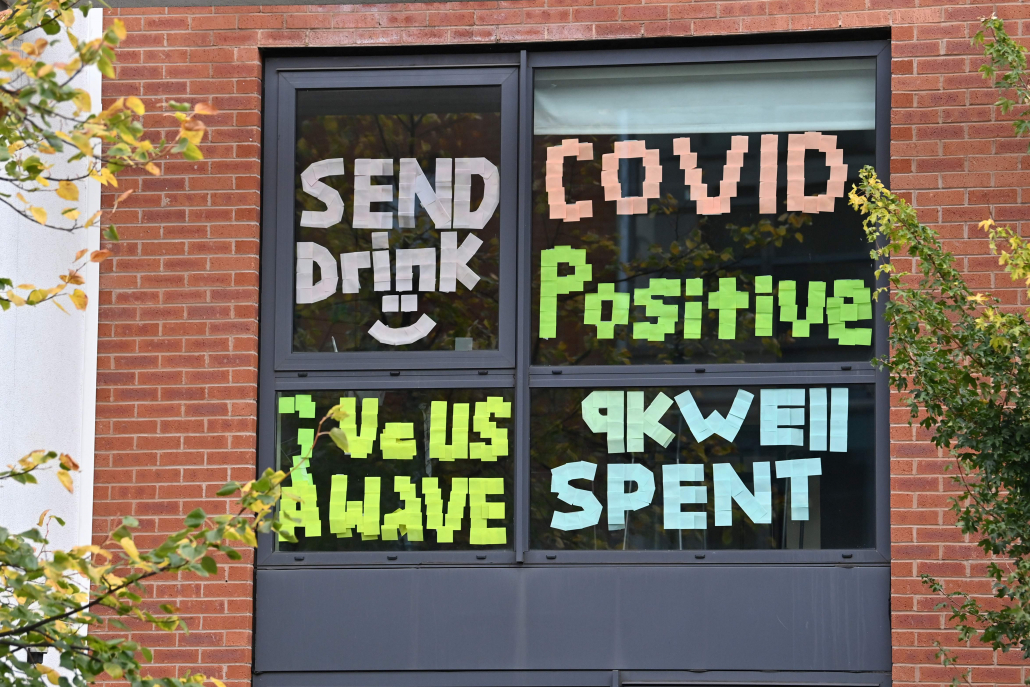 SEND
Drink
COVID
Positive
Give US
A WAVE
9K WELL
SPENT